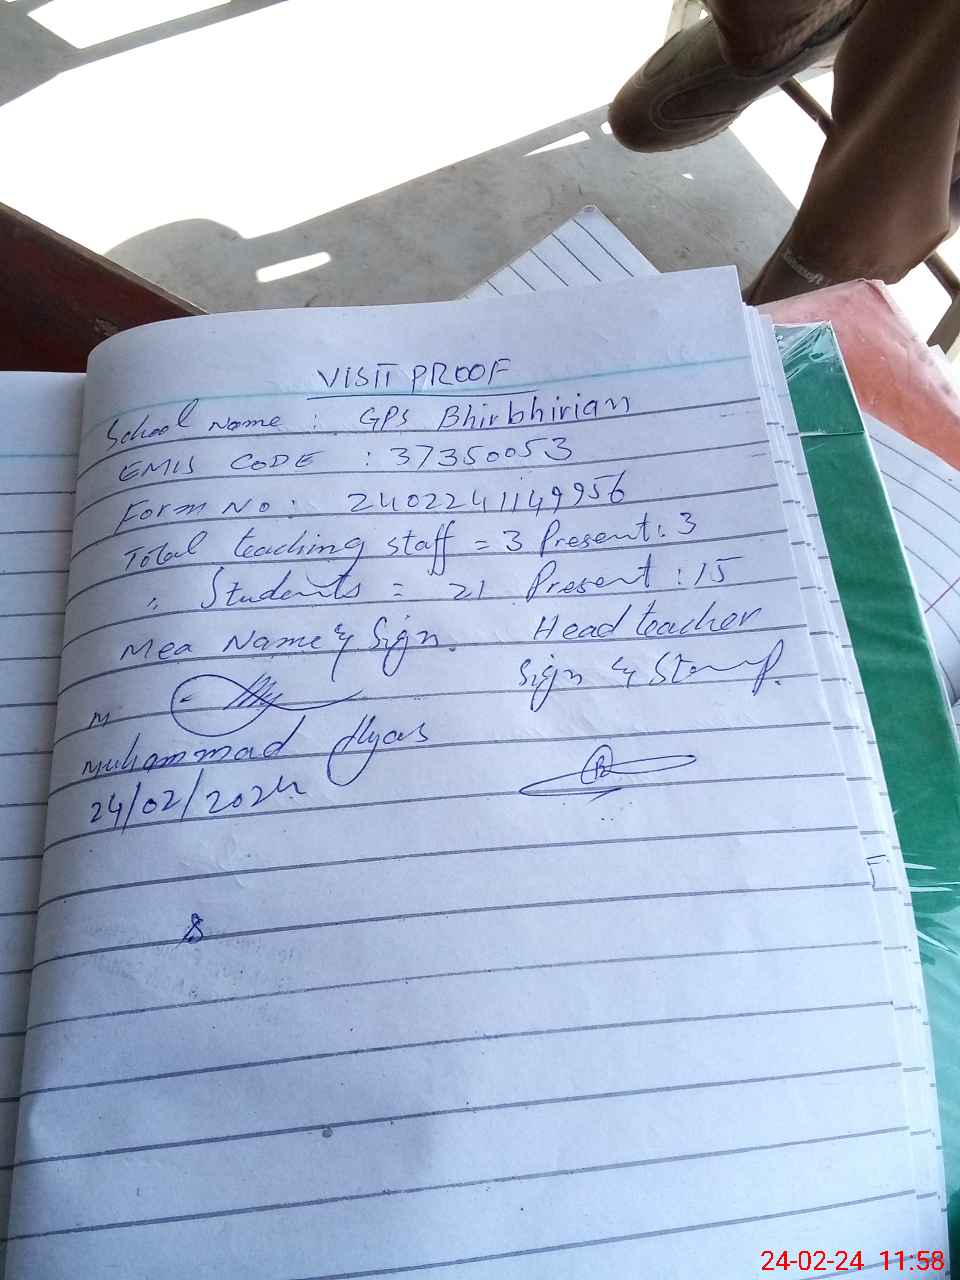 VISIT PROOF
School Name : GPS Bhirbhirian
EMIS CODE : 37350053
Form No : 2402241149956
Total teaching staff = 3 Present : 3
" Students = 21 Present : 15
Mea Name & Sign. Head teacher
Sign & Stamp.
M
Muhammad Ilyas
24/02/2024
24-02-24 11:58